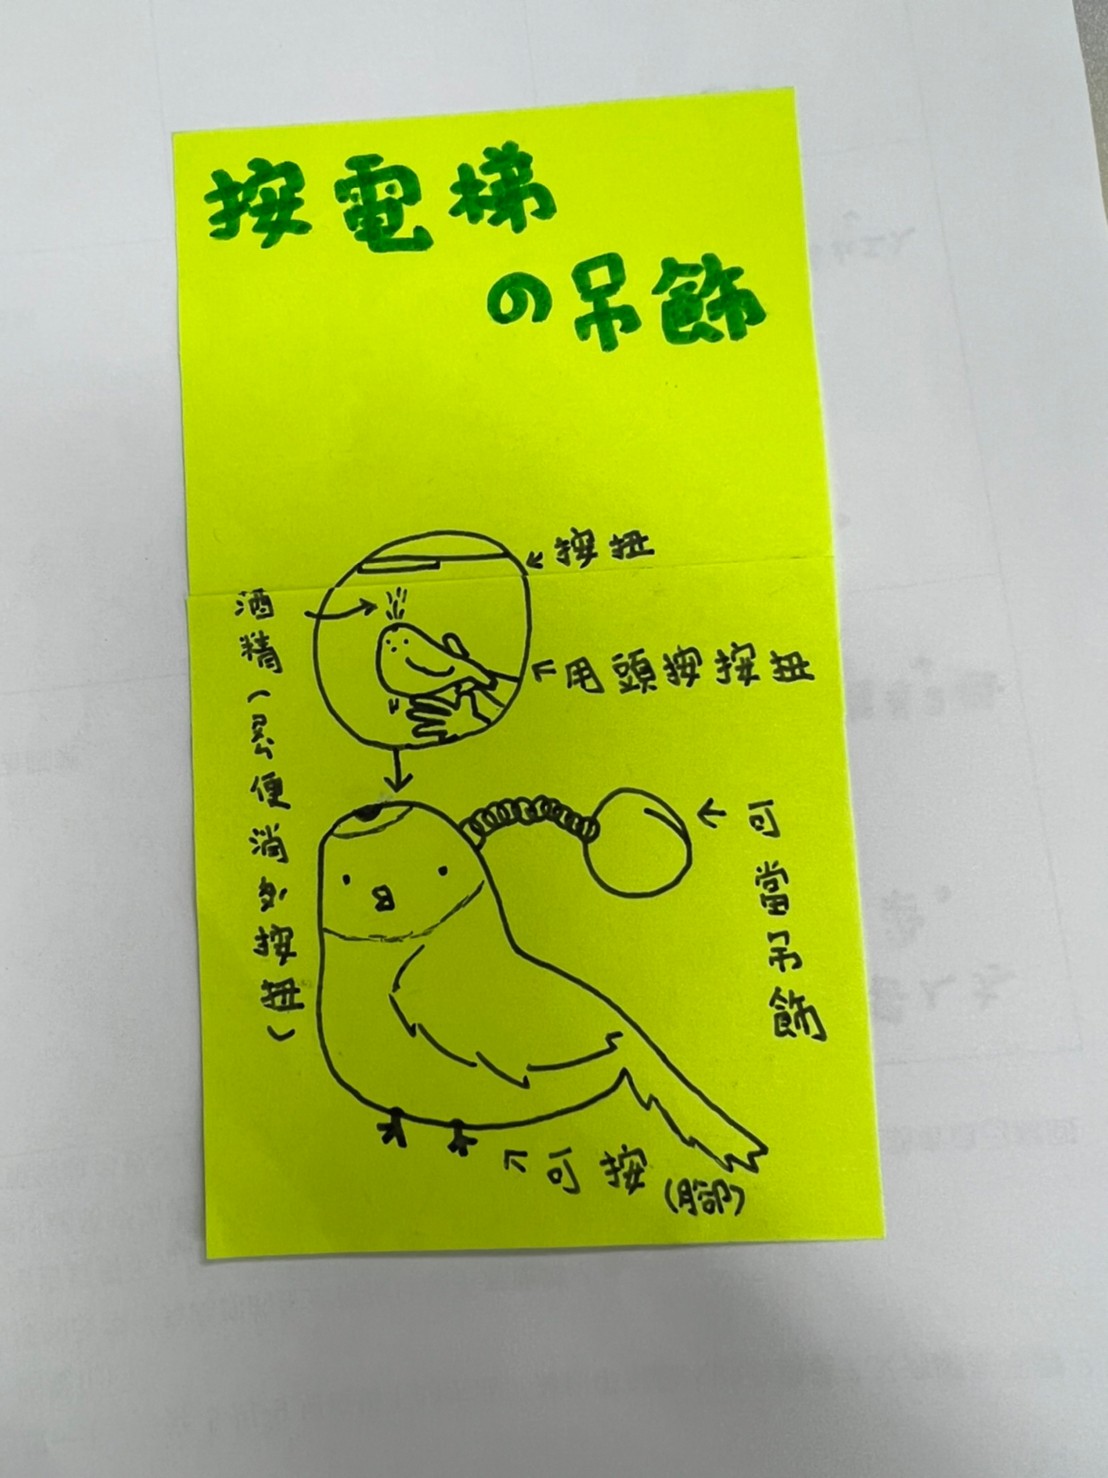 按電梯
の吊飾
按扭
酒精(以便消毒按扭)
用頭按按扭
可當吊飾
可按(腳)